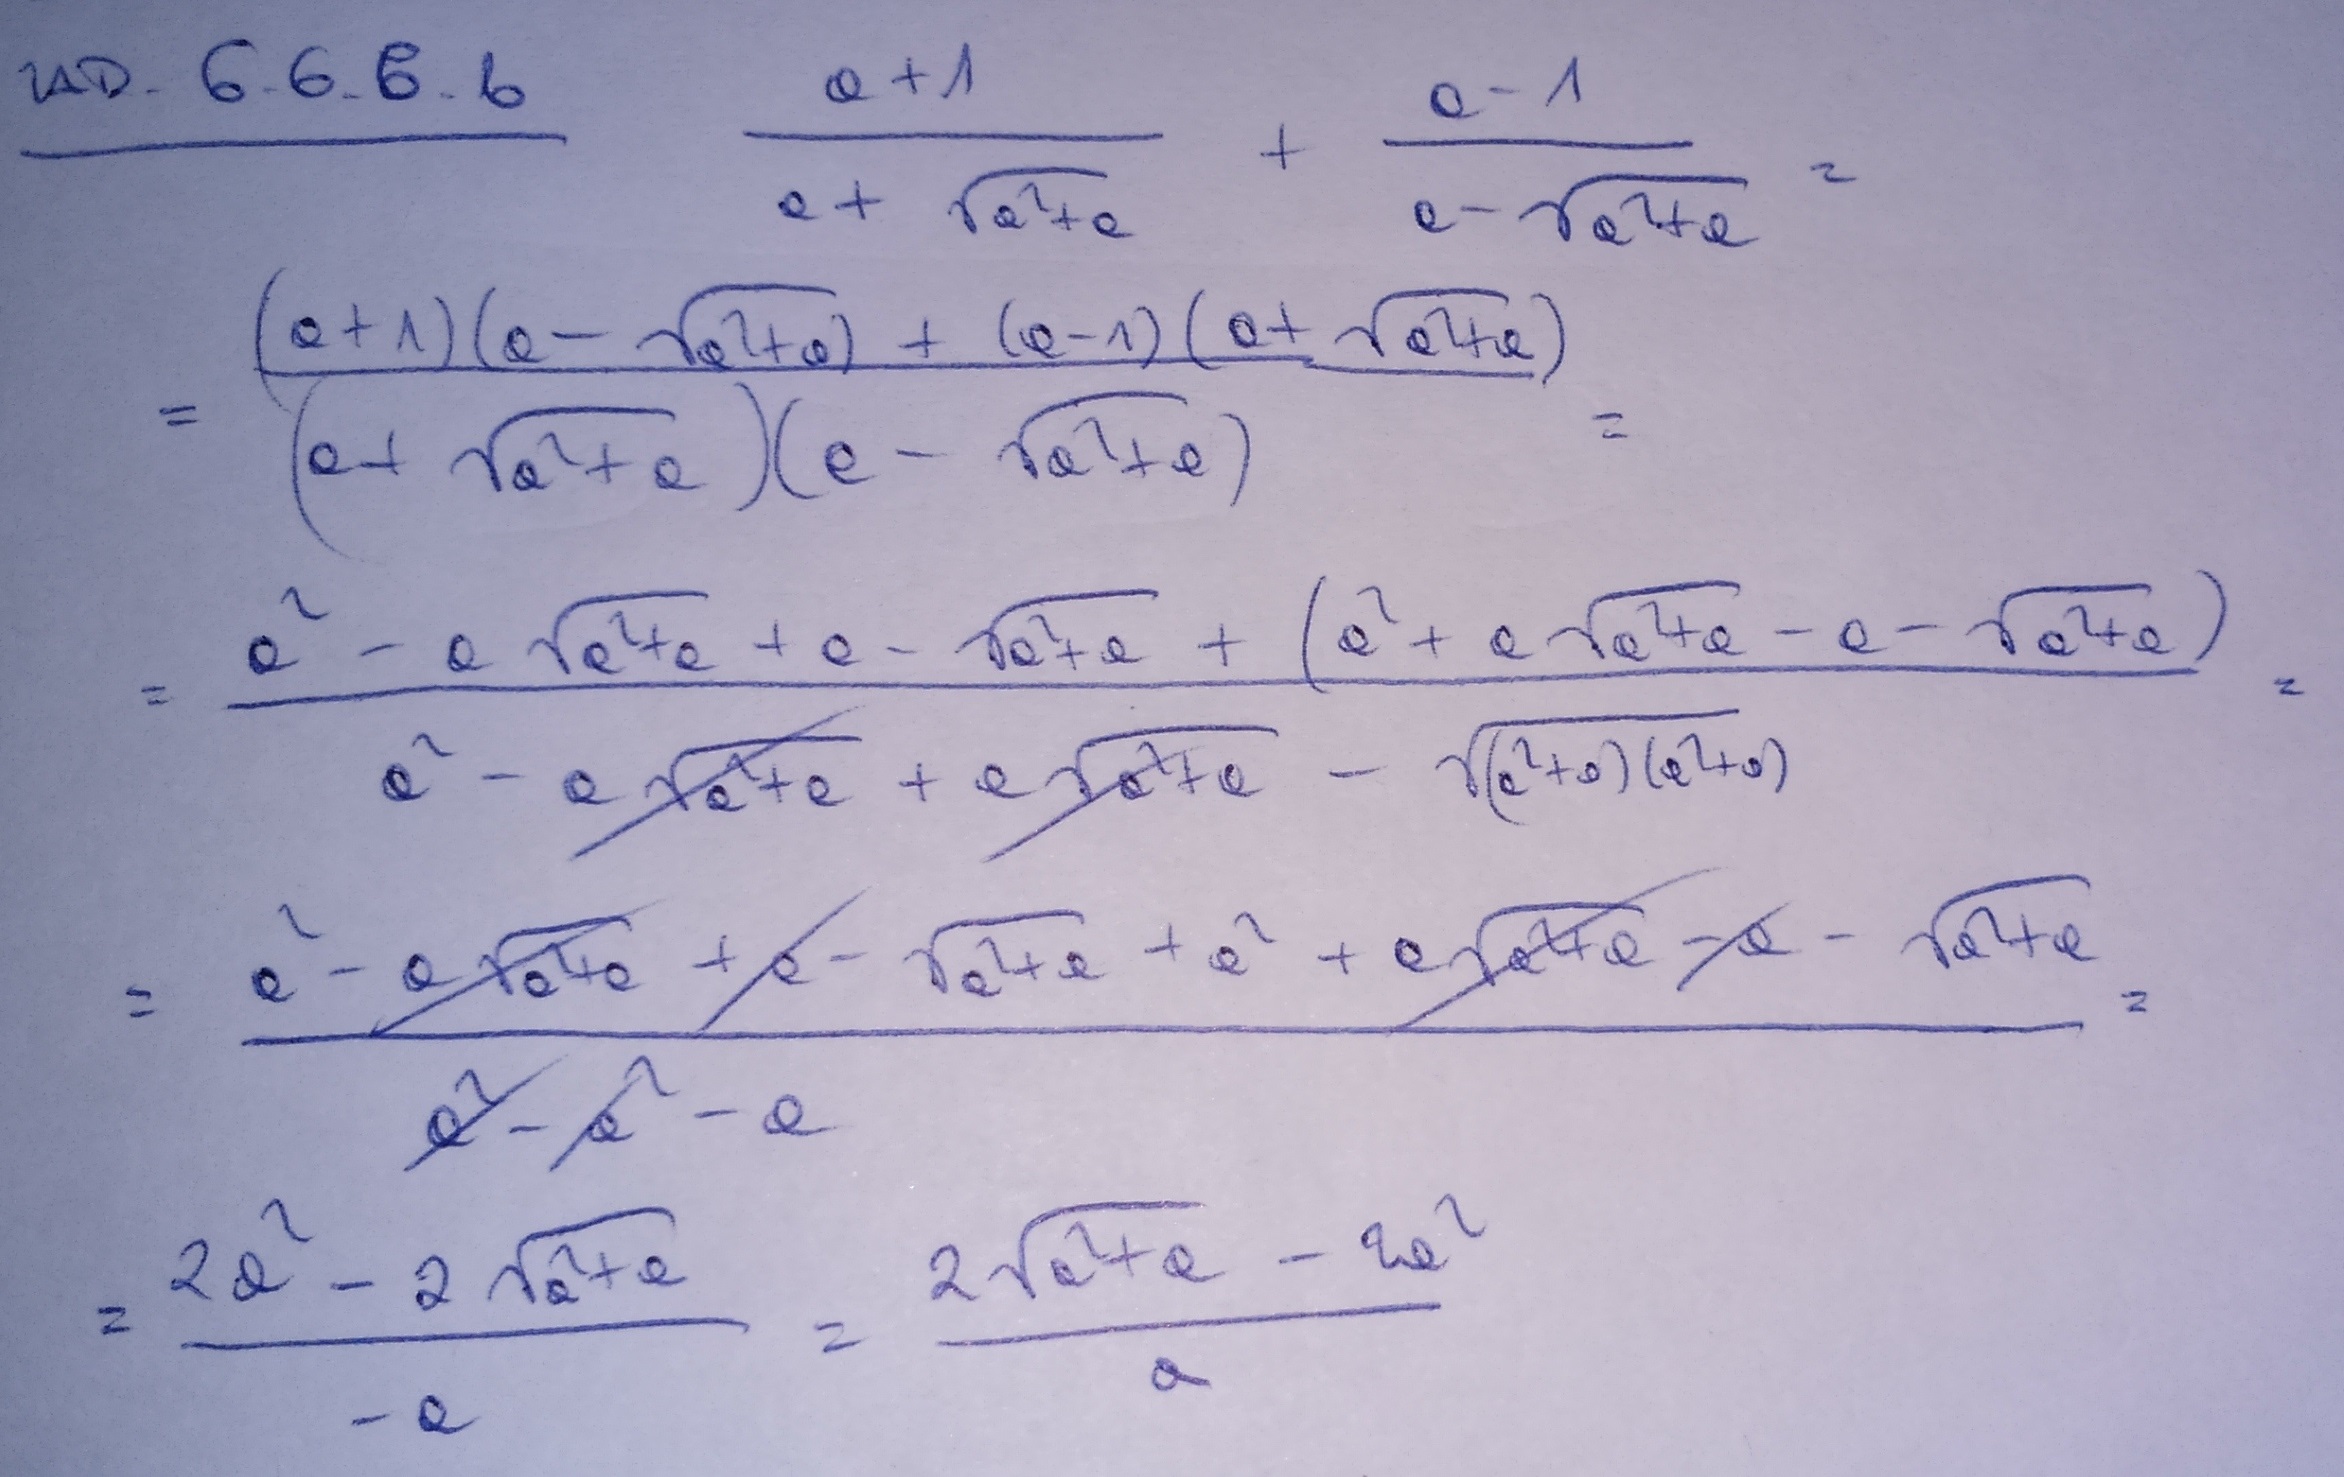 ZAD. 6.6.6.b (a+1)/(a+√(a²+a)) + (a-1)/(a-√(a²+a)) =
= ((a+1)(a-√(a²+a)) + (a-1)(a+√(a²+a)))/((a+√(a²+a))(a-√(a²+a))) =
= (a² - a√(a²+a) + a - √(a²+a) + (a² + a√(a²+a) - a - √(a²+a)))/(a² - a√(a²+a) + a√(a²+a) - √((a²+a)(a²+a))) =
= (a² - a√(a²+a) + a - √(a²+a) + a² + a√(a²+a) - a - √(a²+a))/(a² - a² - a) =
= (2a² - 2√(a²+a))/(-a) = (2√(a²+a) - 2a²)/a